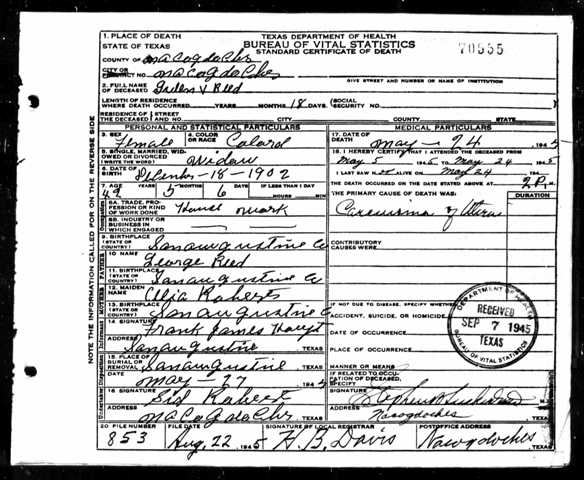 TEXAS DEPARTMENT OF HEALTH
BUREAU OF VITAL STATISTICS
STANDARD CERTIFICATE OF DEATH
70555
1. PLACE OF DEATH
STATE OF TEXAS
COUNTY OF Nacogdoches
CITY OR PRECINCT NO. Nacogdoches
GIVE STREET AND NUMBER OR NAME OF INSTITUTION
2. FULL NAME OF DECEASED V Reed
LENGTH OF RESIDENCE WHERE DEATH OCCURRED YEARS MONTHS 18 DAYS (SOCIAL SECURITY NO.
RESIDENCE OF THE DECEASED STREET AND NO. CITY COUNTY STATE
PERSONAL AND STATISTICAL PARTICULARS
MEDICAL PARTICULARS
3. SEX Female 4. COLOR OR RACE Colord
17. DATE OF DEATH May - 24 1945
5. SINGLE, MARRIED, WIDOWED OR DIVORCED (WRITE THE WORD) Widow
18. I HEREBY CERTIFY THAT I ATTENDED THE DECEASED FROM May 5 1945 TO May 24 1945
I LAST SAW H ALIVE ON May 24 19
6. DATE OF BIRTH - 18 - 1902
THE DEATH OCCURRED ON THE DATE STATED ABOVE AT 2 P M.
7. AGE 5 6 IF LESS THAN 1 DAY
YEARS MONTHS DAYS HOURS MIN.
THE PRIMARY CAUSE OF DEATH WAS: DURATION
8A. TRADE, PROFESSION OR KIND OF WORK DONE House Work
of Uterus
8B. INDUSTRY OR BUSINESS IN WHICH ENGAGED
9. BIRTHPLACE (STATE OR COUNTRY) San augustine Co
CONTRIBUTORY CAUSES WERE:
10 NAME George Reed
11. BIRTHPLACE (STATE OR COUNTRY) San augustine Co
12. MAIDEN NAME Roberts
13. BIRTHPLACE (STATE OR COUNTRY) San augustine Co
IF NOT DUE TO DISEASE, SPECIFY WHETHER:
ACCIDENT, SUICIDE, OR HOMICIDE
14 SIGNATURE Frank James
DATE OF OCCURRENCE
ADDRESS San augustine TEXAS
PLACE OF OCCURRENCE
15. PLACE OF BURIAL OR REMOVAL San augustine TEXAS
MANNER OR MEANS
DATE May - 27 194
IF RELATED TO OCCUPATION OF DECEASED, SPECIFY
16 SIGNATURE Sid Roberts
SIGNATURE
ADDRESS Nacogdoches TEXAS
ADDRESS Nacogdoches TEXAS
20 FILE NUMBER 853
FILE DATE Aug. 22 1945
SIGNATURE OF LOCAL REGISTRAR H. B. Davis
POSTOFFICE ADDRESS Nacogdoches TEXAS
DEPARTMENT OF HEALTH
RECEIVED
SEP 7 1945
TEXAS
BUREAU OF VITAL STATISTICS
NOTE THE INFORMATION CALLED FOR ON THE REVERSE SIDE
FATHER
MOTHER